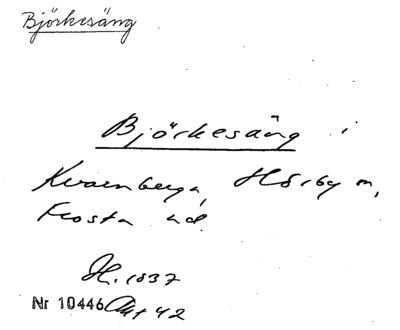 Björkesäng
Björkesäng i
Kvarnberga, Hörby sn,
Frosta hd.
H. 1837
Nr 10446 Akt 42